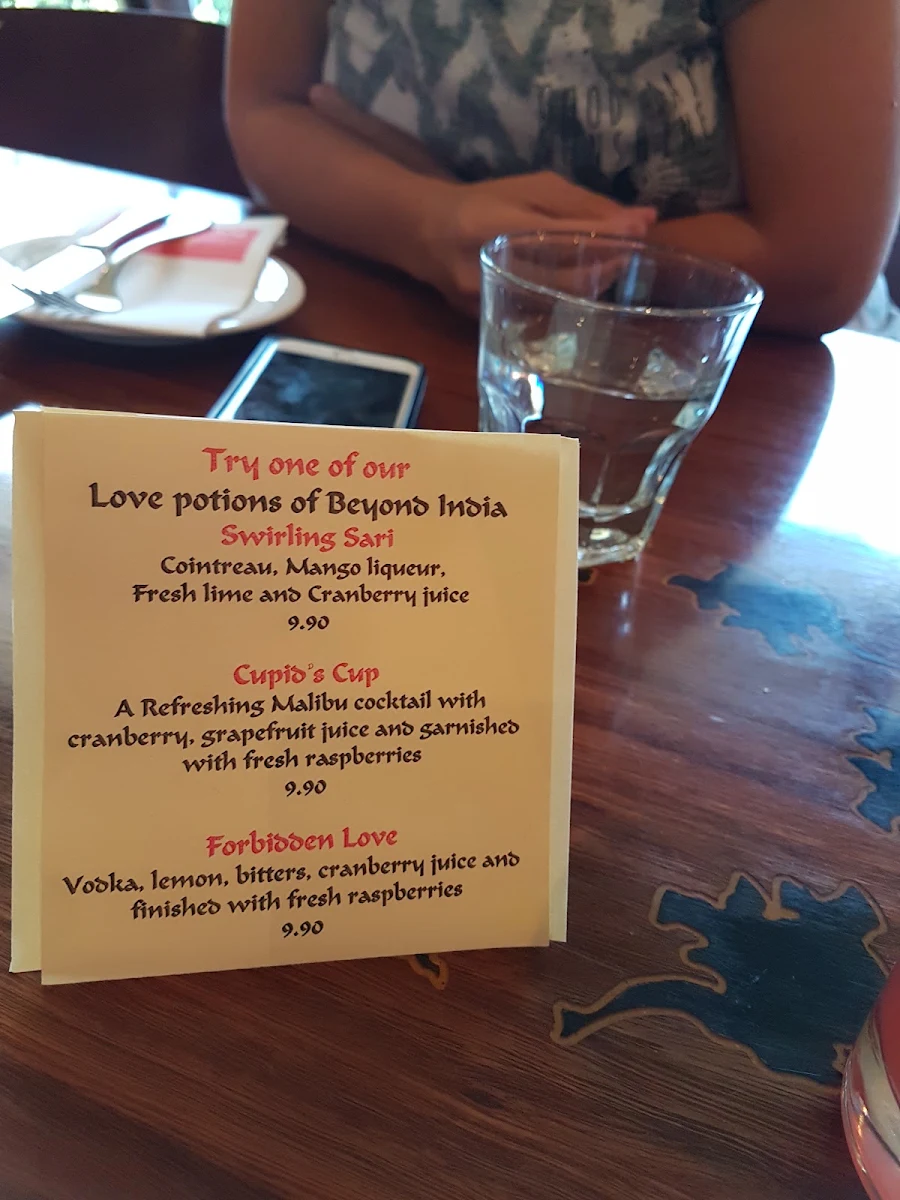 Try one of our
Love potions of Beyond India
Swirling Sari
Cointreau, Mango liqueur,
Fresh lime and Cranberry juice
9.90
Cupid's Cup
A Refreshing Malibu cocktail with
cranberry, grapefruit juice and garnished
with fresh raspberries
9.90
Forbidden Love
Vodka, lemon, bitters, cranberry juice and
finished with fresh raspberries
9.90